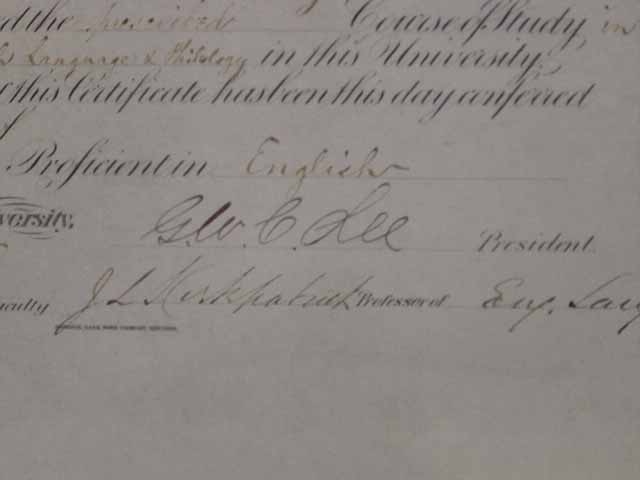 d the prescribed Course of Study in
Language & Philology in this University,
this Certificate has been this day conferred
Proficient in English
versity, G. W. C. Lee President.
aculty J L Kirkpatrick Professor of Eng. Lang